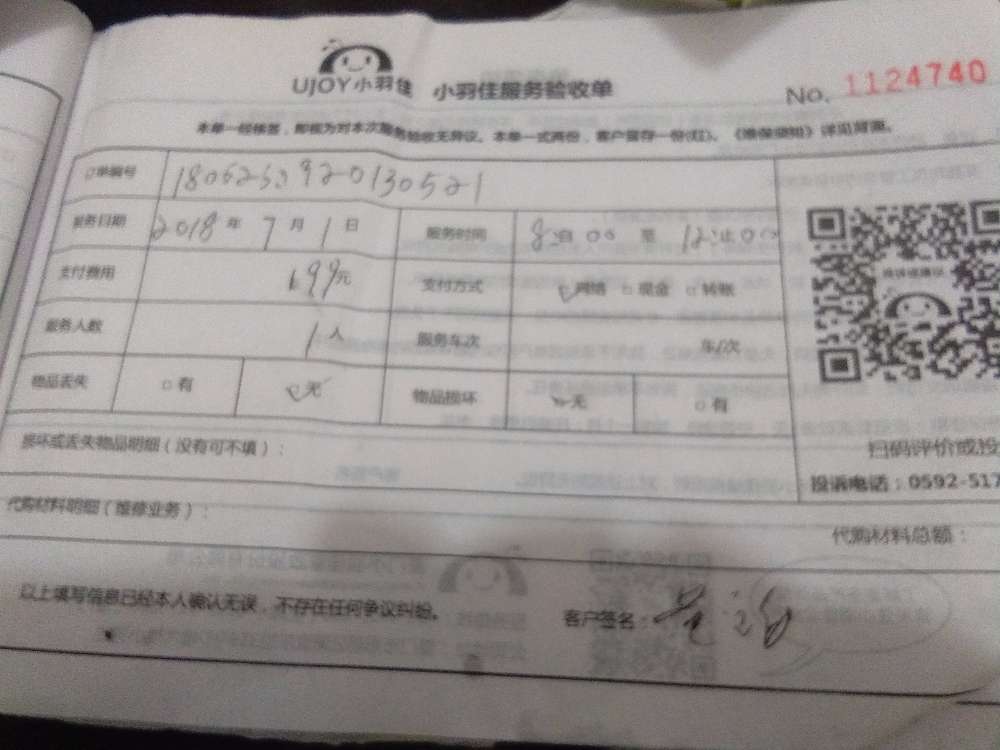 UJOY小羽佳 小羽佳服务验收单 No. 1124740
本单一经签署，即视为对本次服务验收无异议。本单一式两份，客户留存一份(红)。《维保须知》详见背面。
订单编号
服务日期 2018 年 7 月 1 日 服务时间 8:00 至 12:00
支付费用 199元 支付方式 网络 现金 转账
服务人数 1 人 服务车次 车/次
物品丢失 有 无 物品损坏 无 有
损坏或丢失物品明细（没有可不填）：
扫码评价或投
投诉电话：0592-517
代购材料明细（维修业务）：
代购材料总额：
以上填写信息已经本人确认无误，不存在任何争议纠纷。
客户签名：